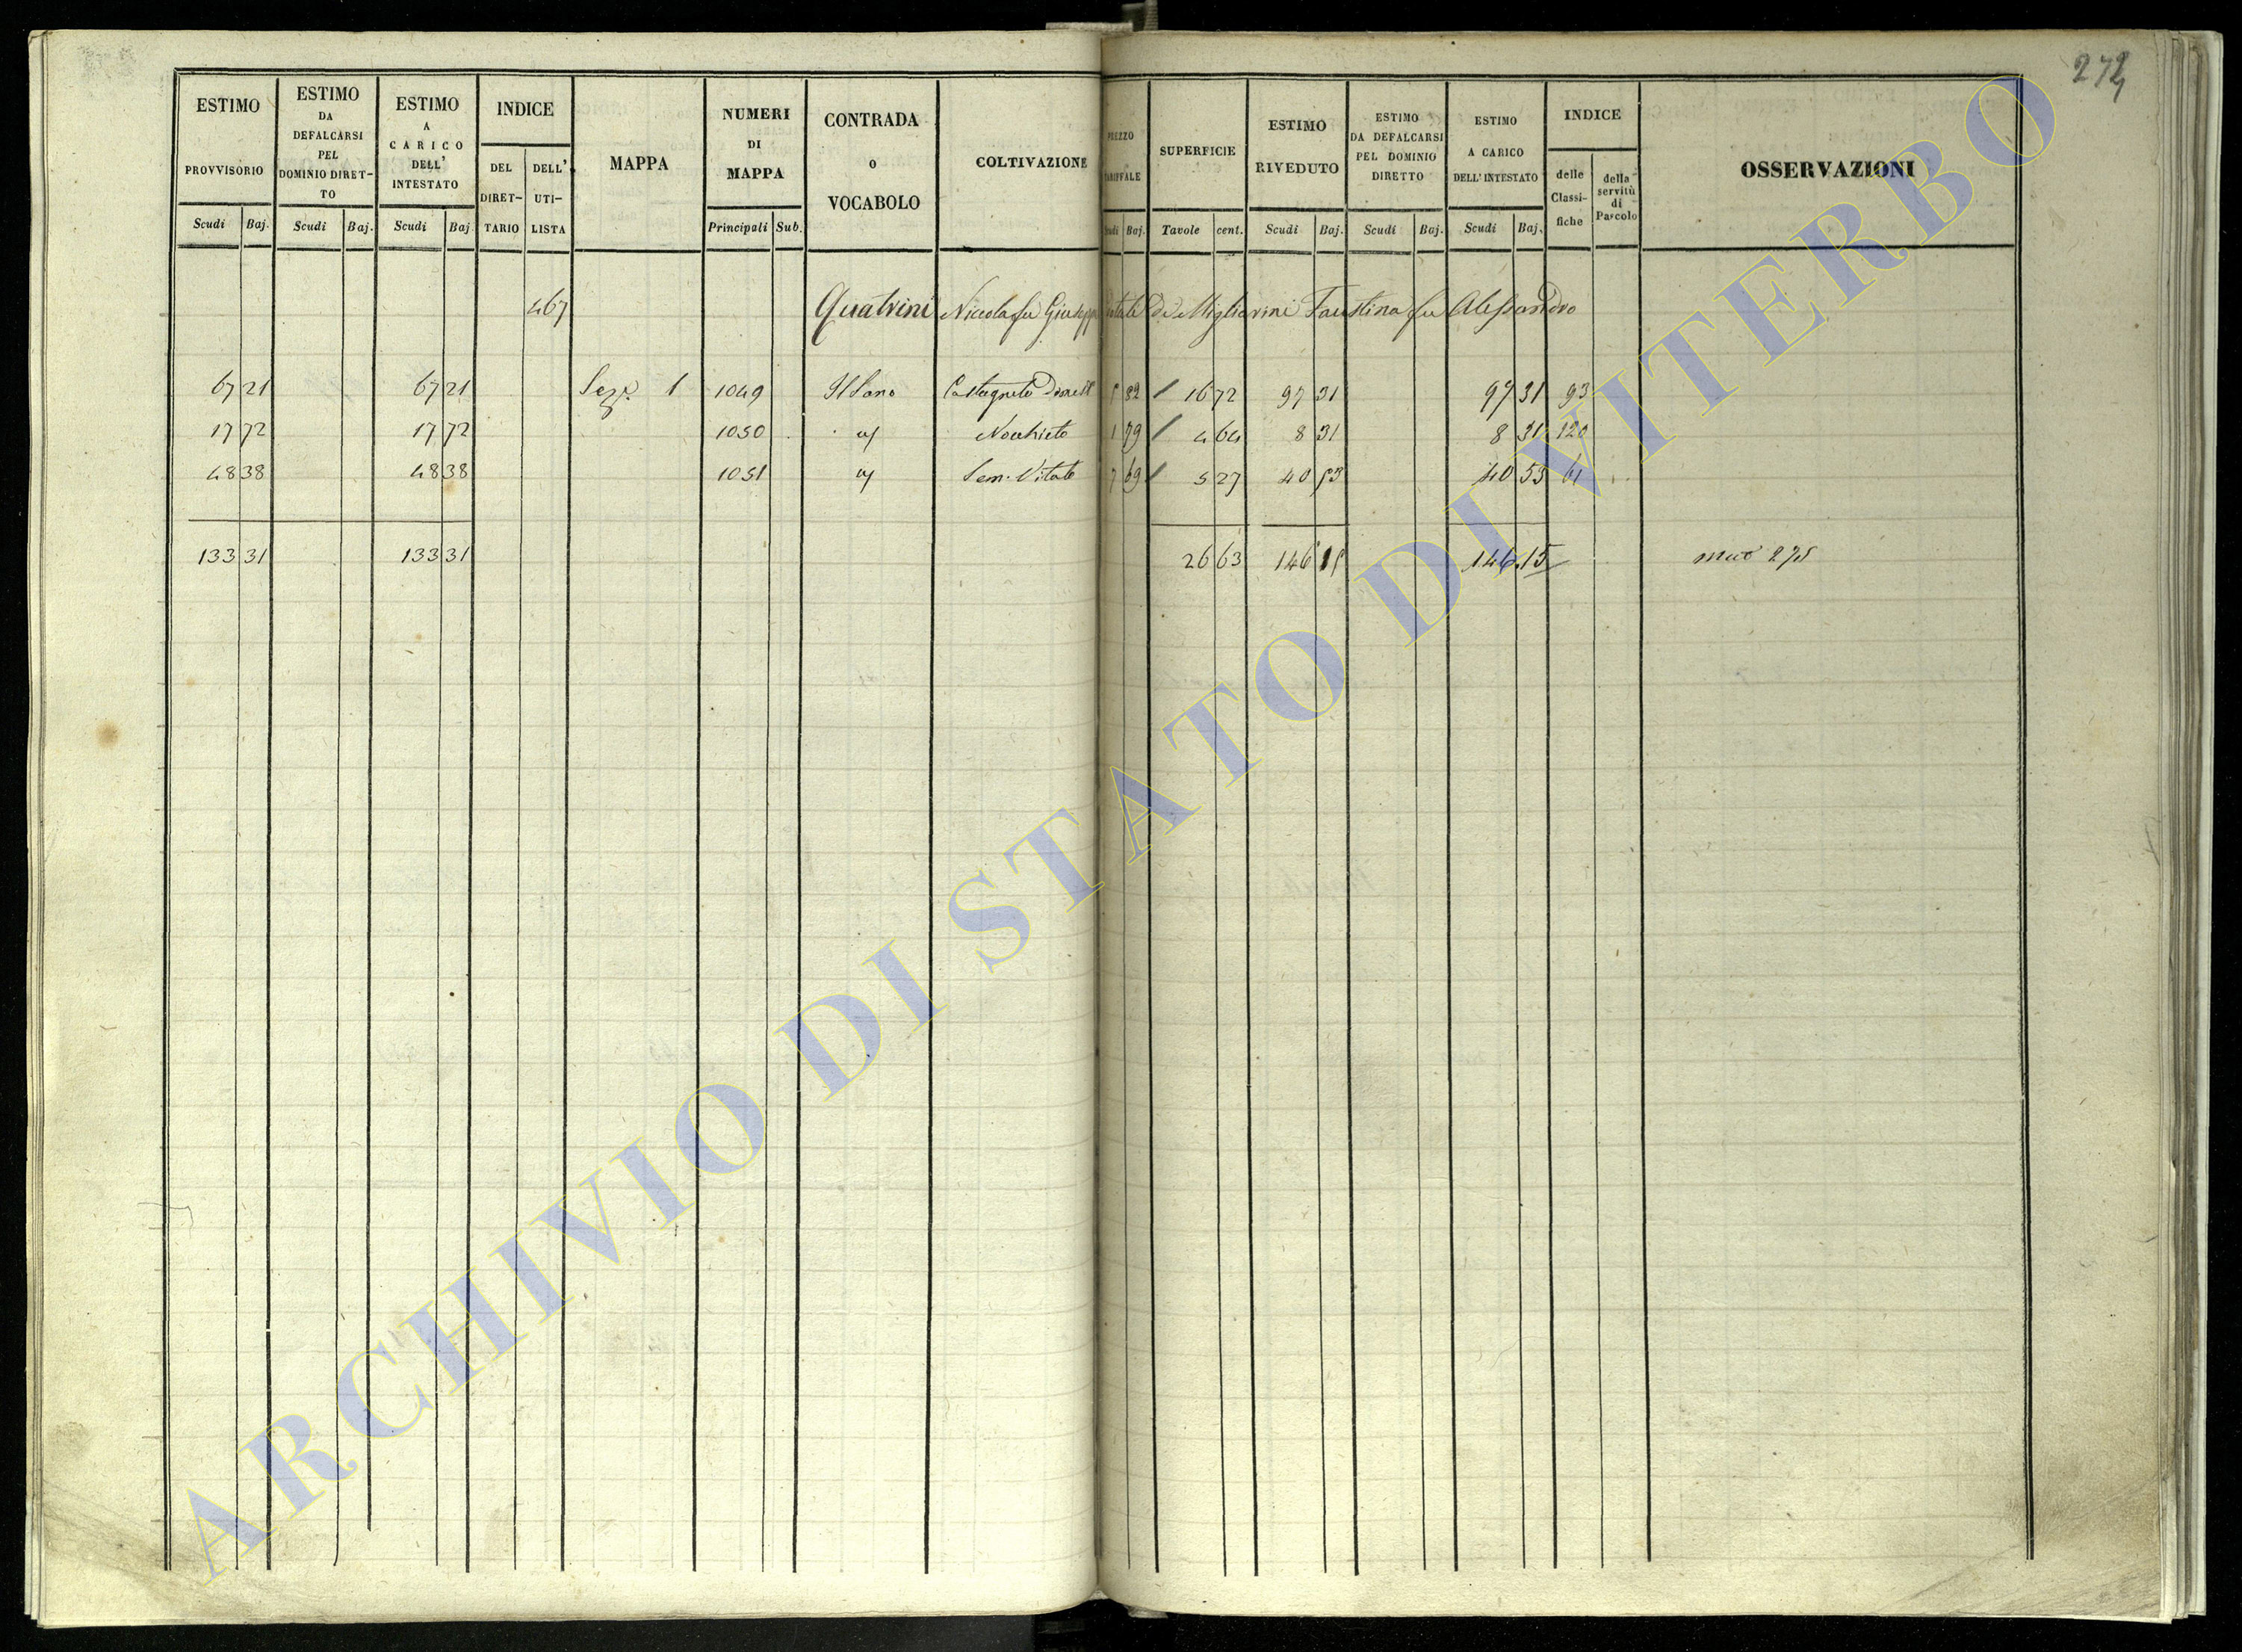 272
ESTIMO PROVVISORIO Scudi Baj.
ESTIMO DA DEFALCARSI PEL DOMINIO DIRET-TO Scudi Baj.
ESTIMO A CARICO DELL' INTESTATO Scudi Baj.
INDICE DEL DIRET-TARIO DELL' UTI-LISTA
MAPPA
NUMERI DI MAPPA Principali Sub.
CONTRADA O VOCABOLO
COLTIVAZIONE
PREZZO TARIFFALE Scudi Baj.
SUPERFICIE Tavole cent.
ESTIMO RIVEDUTO Scudi Baj.
ESTIMO DA DEFALCARSI PEL DOMINIO DIRETTO Scudi Baj.
ESTIMO A CARICO DELL' INTESTATO Scudi Baj.
INDICE delle Classi-fiche della servitù di Pascolo
OSSERVAZIONI
467 Quatrini Nicola fu Giuseppe Dotale di Migliorini Faustina fu Alessandro
67 21 67 21 Sez. 1 1049 Il Sano Castagneto Domest 5 82 16 72 97 31 97 31 93
17 72 17 72 1050 Nocchieto 1 79 4 64 8 31 8 31 120
48 38 48 38 1051 Sem. Vitato 7 69 5 27 40 53 40 53 61
133 31 133 31 26 63 146 15 146.15
ARCHIVIO DI STATO DI VITERBO